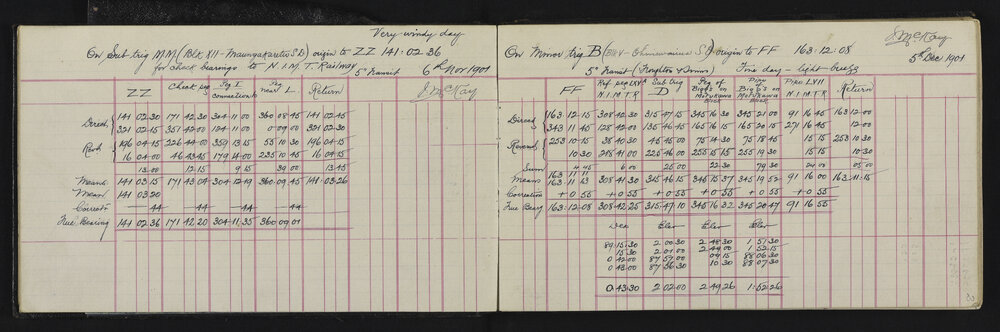 Very windy day
On Sub trig MM (Blk XII - Maungakaretu S.D) origin to ZZ 141·02·36
for check bearings to N.I.M.T. Railway
5" Transit 6th Nov 1901
J McKay
ZZ Check peg Peg I connection to Peg near L. Return
Direct 141 02 30 171 42 30 304 11 00 360 08 45 141 02 15
321 02 15 351 42 00 124 11 00 0 09 00 321 02 30
Revd 196 04 15 226 44 00 359 13 15 55 10 30 196 04 15
16 04 00 46 43 45 179 14 00 235 10 45 16 04 15
13 00 12 15 9 15 39 00 13 45
Means 141 03 15 171 43 04 304 12 19 360 09 45 141 03 26
Mean 141 03 20
Correctn 44 44 44 44
True Bearing 141 02 36 171 42 20 304 11 35 360 09 01
J McKay
On Minor trig B origin to FF 163·12·08
5th Dec 1901
5" Transit (Troughton & Simms) Fine day - light breeze
FF Ref peg N.I.M.T.R Sub trig D Peg of on Motukawa Block Pipe on Motukawa Block Pipe LXII N.I.M.T.R Return
Direct 163 12 15 308 42 30 315 47 15 345 16 30 345 21 00 91 16 45 163 12 00
343 11 45 128 42 00 135 46 45 165 16 15 165 20 15 271 16 45 12 00
Reversed 253 10 15 38 40 30 45 45 00 75 14 30 75 18 45 15 15 253 10 30
10 30 218 41 00 225 46 00 255 15 15 255 19 30 15 15 10 30
Sum 44 45 6 00 25 00 22 30 79 30 24 00 05 00
Means 163 11 11 308 41 30 315 46 15 345 15 37 345 19 52 91 16 00 163 11 15
163 11 13
Correction + 0 55 + 0 55 + 0 55 + 0 55 + 0 55 + 0 55
True Bearg 163 12 08 308 42 25 315 47 10 345 16 32 345 20 47 91 16 55
Dep Elev Elev Elev
89 15 30 2 00 30 2 48 30 1 51 30
15 30 2 01 00 2 49 00 1 52 15
0 42 00 87 57 00 09 15 88 06 30
0 43 00 87 56 30 10 30 88 07 30
0 43 30 2 02 00 2 49 26 1 52 26